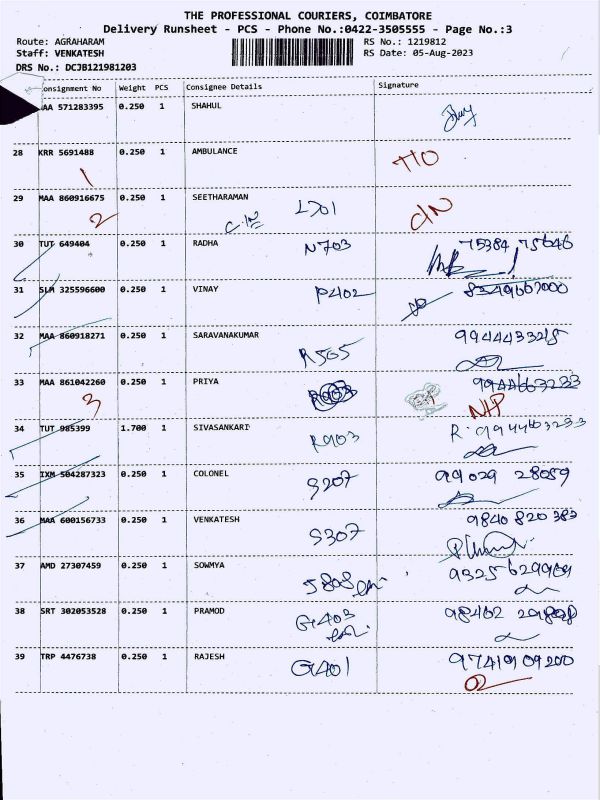 THE PROFESSIONAL COURIERS, COIMBATORE
Delivery Runsheet - PCS - Phone No.:0422-3505555 - Page No.:3
Route: AGRAHARAM RS No.: 1219812
Staff: VENKATESH RS Date: 05-Aug-2023
DRS No.: DCJB121981203
onsignment No Weight PCS Consignee Details Signature
AA 571283395 0.250 1 SHAHUL
28 KRR 5691488 0.250 1 AMBULANCE
1
29 MAA 860916675 0.250 1 SEETHARAMAN L701
2
30 TUT 649404 0.250 1 RADHA N703 75384 75646
31 SLM 325596600 0.250 1 VINAY P402
32 MAA 860918271 0.250 1 SARAVANAKUMAR R505 9944433215
33 MAA 861042260 0.250 1 PRIYA R903 9944663233
3
34 TUT 985399 1.700 1 SIVASANKARI R903
35 IXM 504287323 0.250 1 COLONEL S207 99029 28059
36 MAA 600156733 0.250 1 VENKATESH S307 9840 820 383
37 AMD 27307459 0.250 1 SOWMYA S808
38 SRT 302053528 0.250 1 PRAMOD G403
39 TRP 4476738 0.250 1 RAJESH G401 9741909200